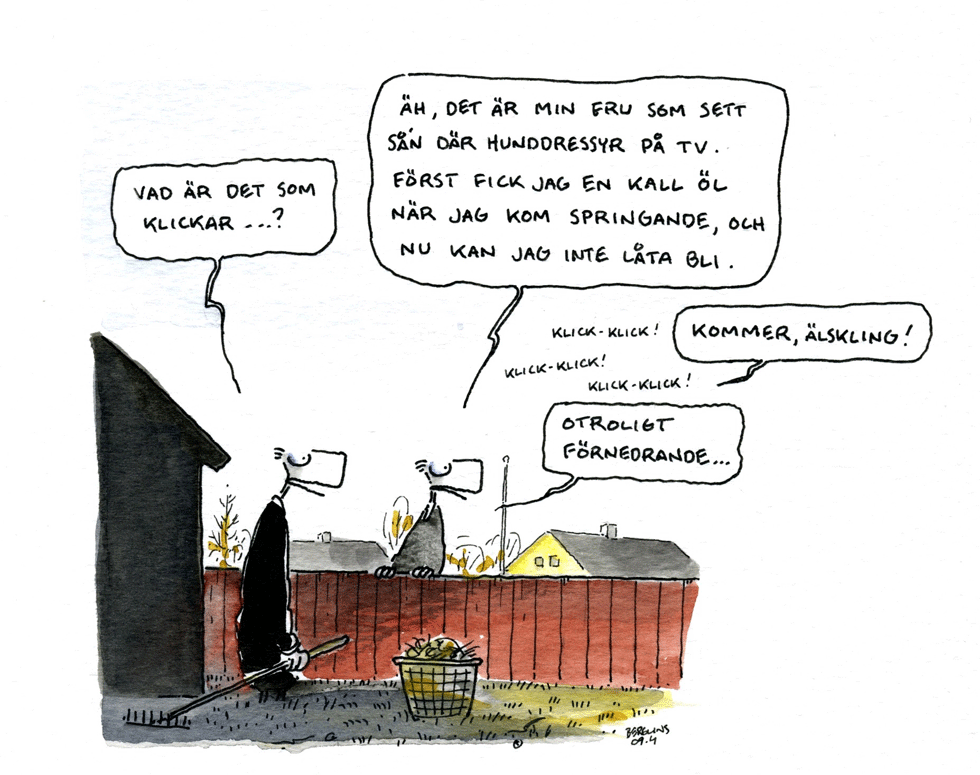 VAD ÄR DET SOM
KLICKAR ...?
ÄH, DET ÄR MIN FRU SOM SETT
SÅ'N DÄR HUNDDRESSYR PÅ TV.
FÖRST FICK JAG EN KALL ÖL
NÄR JAG KOM SPRINGANDE, OCH
NU KAN JAG INTE LÅTA BLI.
KLICK-KLICK!
KLICK-KLICK!
KLICK-KLICK!
KOMMER, ÄLSKLING!
OTROLIGT
FÖRNEDRANDE...
BERGLINS
09.4